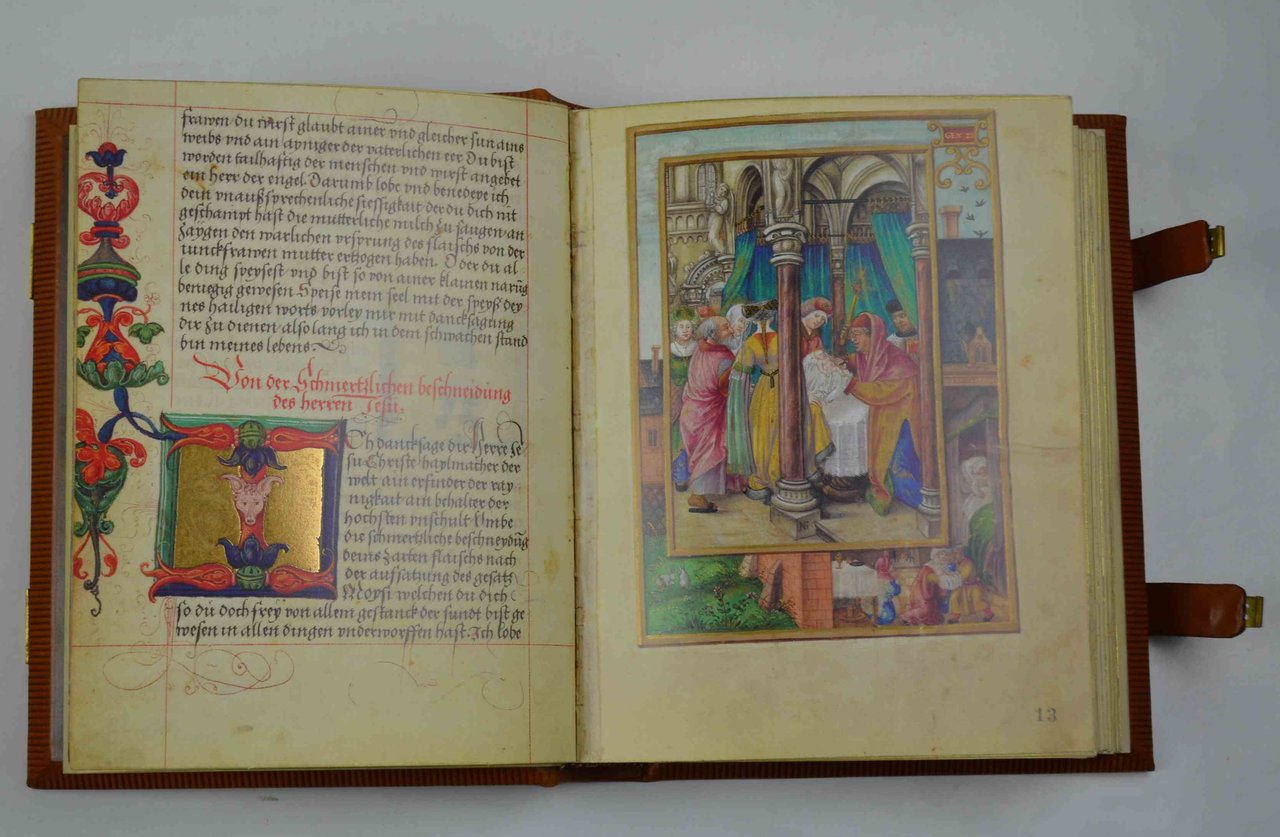 frawen du wirst glaubt ainer vnd gleicher sun ains
weibs vnd ain ayniger der vaterlichen eer Du bist
worden tailhafftig der menschen vnd wirst angebet
ein herr der engel. Darumb lobe vnd benedeye ich
dein vnaußsprechenliche siessigkeit der du dich nit
geschampt hast die mutterliche milch zu saugen an
zaygen den warlichen vrsprung des flaischs von der
iunckfrawen mutter ertzogen haben. O der du al-
le ding speysest vnd bist so von ainer klainen narūg
benuegig gewesen Speise mein seel mit der speyß dey
nes hailigen worts vorley mir mit dancksagung
dir zu dienen also lang ich in dem schwachen stand
bin meines lebens
Von der Schmertzlichen beschneidung
des herren Jesu.
Ich dancksage dir Herre Je
su Christe haylmacher der
welt ain erfinder der ray-
nigkait ain behalter der
hochsten vnschult Vmbe
die schmertzliche beschneydūg
deins zarten flaischs nach
der auffsatzung des gesatz
Moysi welchen du dich
so du doch frey von allem gestanck der sundt bist ge
wesen in allen dingen vnderworffen hast. Ich lobe
13